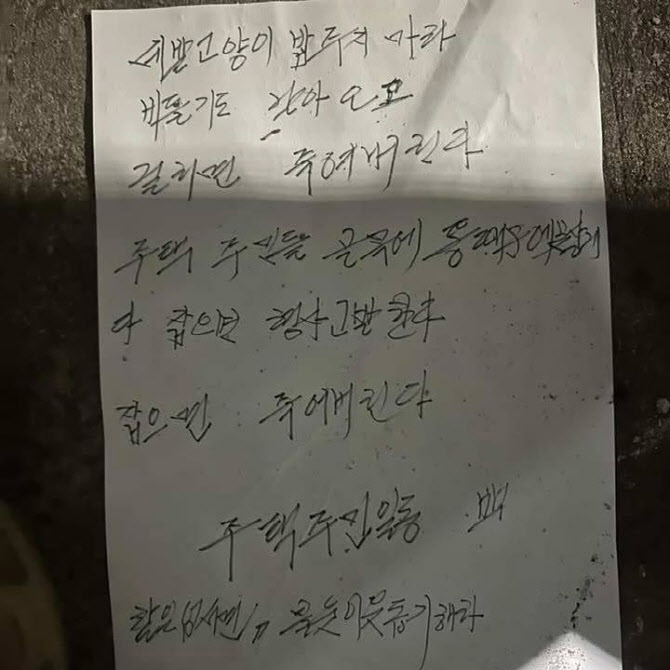 제발 고양이 밥 두지 마라
비들기도 날아오고
걸리면 죽여버린다
주택 주민들 골목에 똥
다 잡으면 형사고발 한다
잡으면 죽여버린다
주택주민일동 백
할일 없으면,, 불우이웃돕기해라